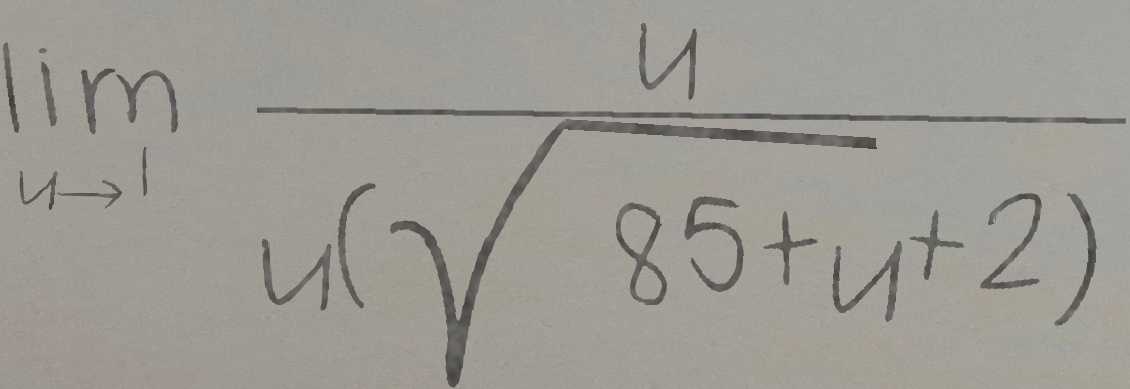 lim u→1 u / u(√85+u+2)